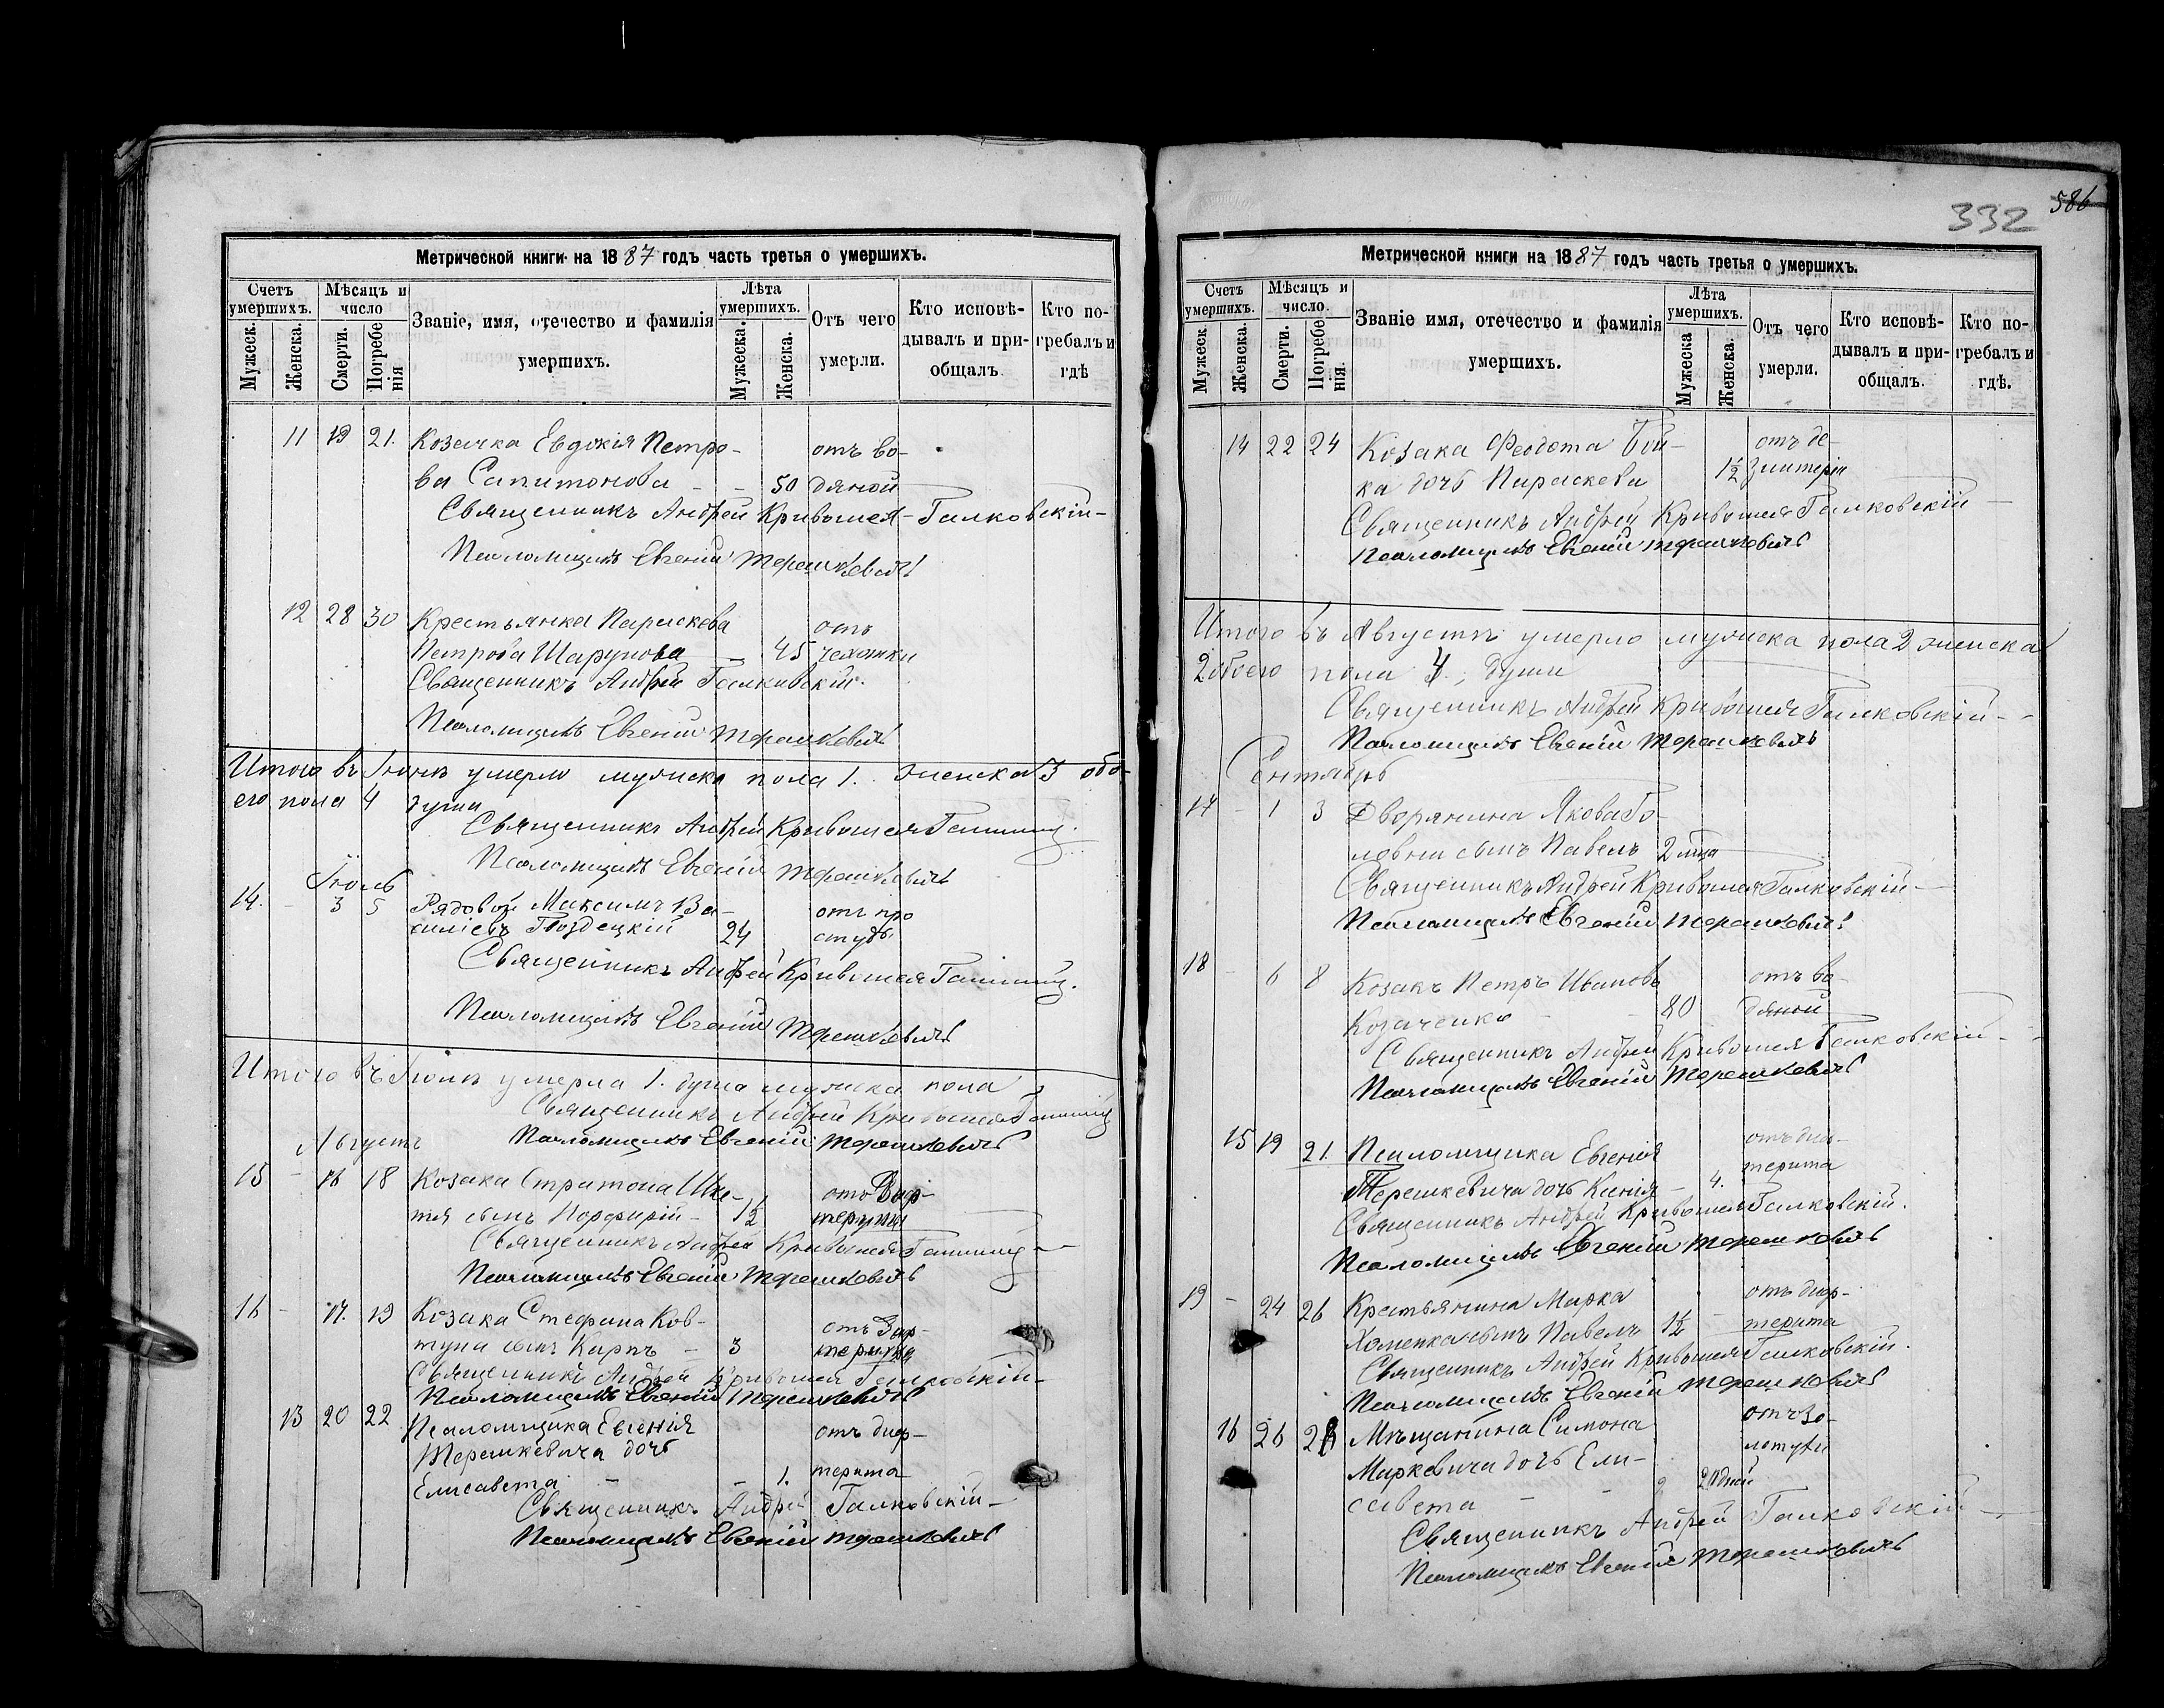 Метрической книги на 1887 годъ часть третья о умершихъ.
Счетъ умершихъ.
Мѣсяцъ и число
Званіе, имя, отечество и фамилія умершихъ.
Лѣта умершихъ.
Отъ чего умерли.
Кто исповѣдывалъ и пріобщалъ.
Кто погребалъ и гдѣ
Мужеск.
Женска.
Смерти.
Погребенія
Мужеска.
Женска.
11 19 21. Козачка Евдокія Петро- отъ во-
ва Сапитонова - - 50 дяной
Священникъ Андрей Кривошея-Галковскій-
Псаломщикъ Евгеній Терешкевичъ
12 28 30 Крестьянка Параскева отъ
Петрова Шарунова - 45 чахотки
Священникъ Андрей Галковскій.
Псаломщикъ Евгеній Терешкевичъ
Итого въ Іюнѣ умерло мужска пола 1. женска 3 обо-
его пола 4 души
Священникъ Андрей Кривошея
Псаломщикъ Евгеній Терешкевичъ
Іюль
14. - 3 5 Рядовой Максимъ Ва- отъ про
силіевъ Гвоздецкій 24 студы
Священникъ Андрей Кривошея
Псаломщикъ Евгеній Терешкевичъ
Итого въ Іюлѣ умерла 1. душа мужска пола
Священникъ Андрей Кривошея
Августъ Псаломщикъ Евгеній Терешкевичъ
15 - 16 18 Козака Стратона Шке- отъ диф-
тя сынъ Порфирій - 1½ терита
Священникъ Андрей Кривошея
Псаломщикъ Евгеній Терешкевичъ
16 - 17. 19 Козака Стефана Ков- отъ диф-
туна сынъ Карпъ - 3 терита
Священникъ Андрей Кривошея Галковскій-
Псаломщикъ Евгеній Терешкевичъ
13 20 22 Псаломщика Евгенія отъ диф-
Терешкевича дочь
Елисавета - - 1. терита
Священникъ Андрей Галковскій-
Псаломщикъ Евгеній Терешкевичъ
586
332
Метрической книги на 1887 годъ часть третья о умершихъ.
Счетъ умершихъ.
Мѣсяцъ и число.
Званіе имя, отечество и фамилія умершихъ.
Лѣта умершихъ.
Отъ чего умерли.
Кто исповѣдывалъ и пріобщалъ.
Кто погребалъ и гдѣ.
Мужеск
Женска.
Смерти.
Погребенія.
Мужеска
Женска.
14 22 24 Козака Феодота Бой- отъ де-
ка дочь Параскева 1½ зинтеріи
Священникъ Андрей Кривошея Галковскій
Псаломщикъ Евгеній Терешкевичъ
Итого въ Августѣ умерло мужска пола 2 женска
2 обоего пола 4., души
Священникъ Андрей Кривошея Галковскій-
Псаломщикъ Евгеній Терешкевичъ
Сентябрь
17 - 1 3 Дворянина Якова Го-
ловни сынъ Павелъ 2 мца
Священникъ Андрей Кривошея Галковскій-
Псаломщикъ Евгеній Терешкевичъ
18 - 6 8 Козакъ Петръ Ивановъ отъ во-
Козаченко - - 80 дяной
Священникъ Андрей Кривошея Галковскій-
Псаломщикъ Евгеній Терешкевичъ
15 19 21. Псаломщика Евгенія отъ диф-
Терешкевича дочь Ксенія - 4. терита
Священникъ Андрей Кривошея Галковскій.
Псаломщикъ Евгеній Терешкевичъ
19 - 24 26 Крестьянина Марка отъ диф-
Хоменка сынъ Павелъ 1½ - терита
Священникъ Андрей Кривошея Галковскій.
Псаломщикъ Евгеній Терешкевичъ
16 26 28 Мѣщанина Симона отъ зо-
Маркевича дочь Ели- лотухи
савета - - дней
Священникъ Андрей Галковскій
Псаломщикъ Евгеній Терешкевичъ